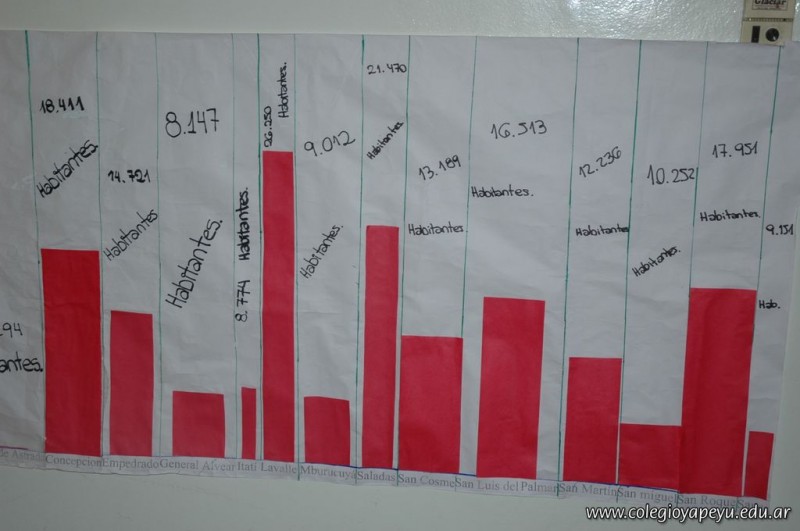 18.411
Habitantes.
14.721
Habitantes
8.147
Habitantes.
8.774 Habitantes.
26.250 Habitantes.
9.012
Habitantes.
21.470
Habitantes
13.189
Habitantes.
16.513
Habitantes.
12.236
Habitantes
10.252
Habitantes.
17.951
Habitantes.
9.151
Hab.
Concepcion Empedrado General Alvear Itati Lavalle Mburucuya Saladas San Cosme San Luis del Palmar San Martin San miguel San Roque
www.colegioyapeyu.edu.ar